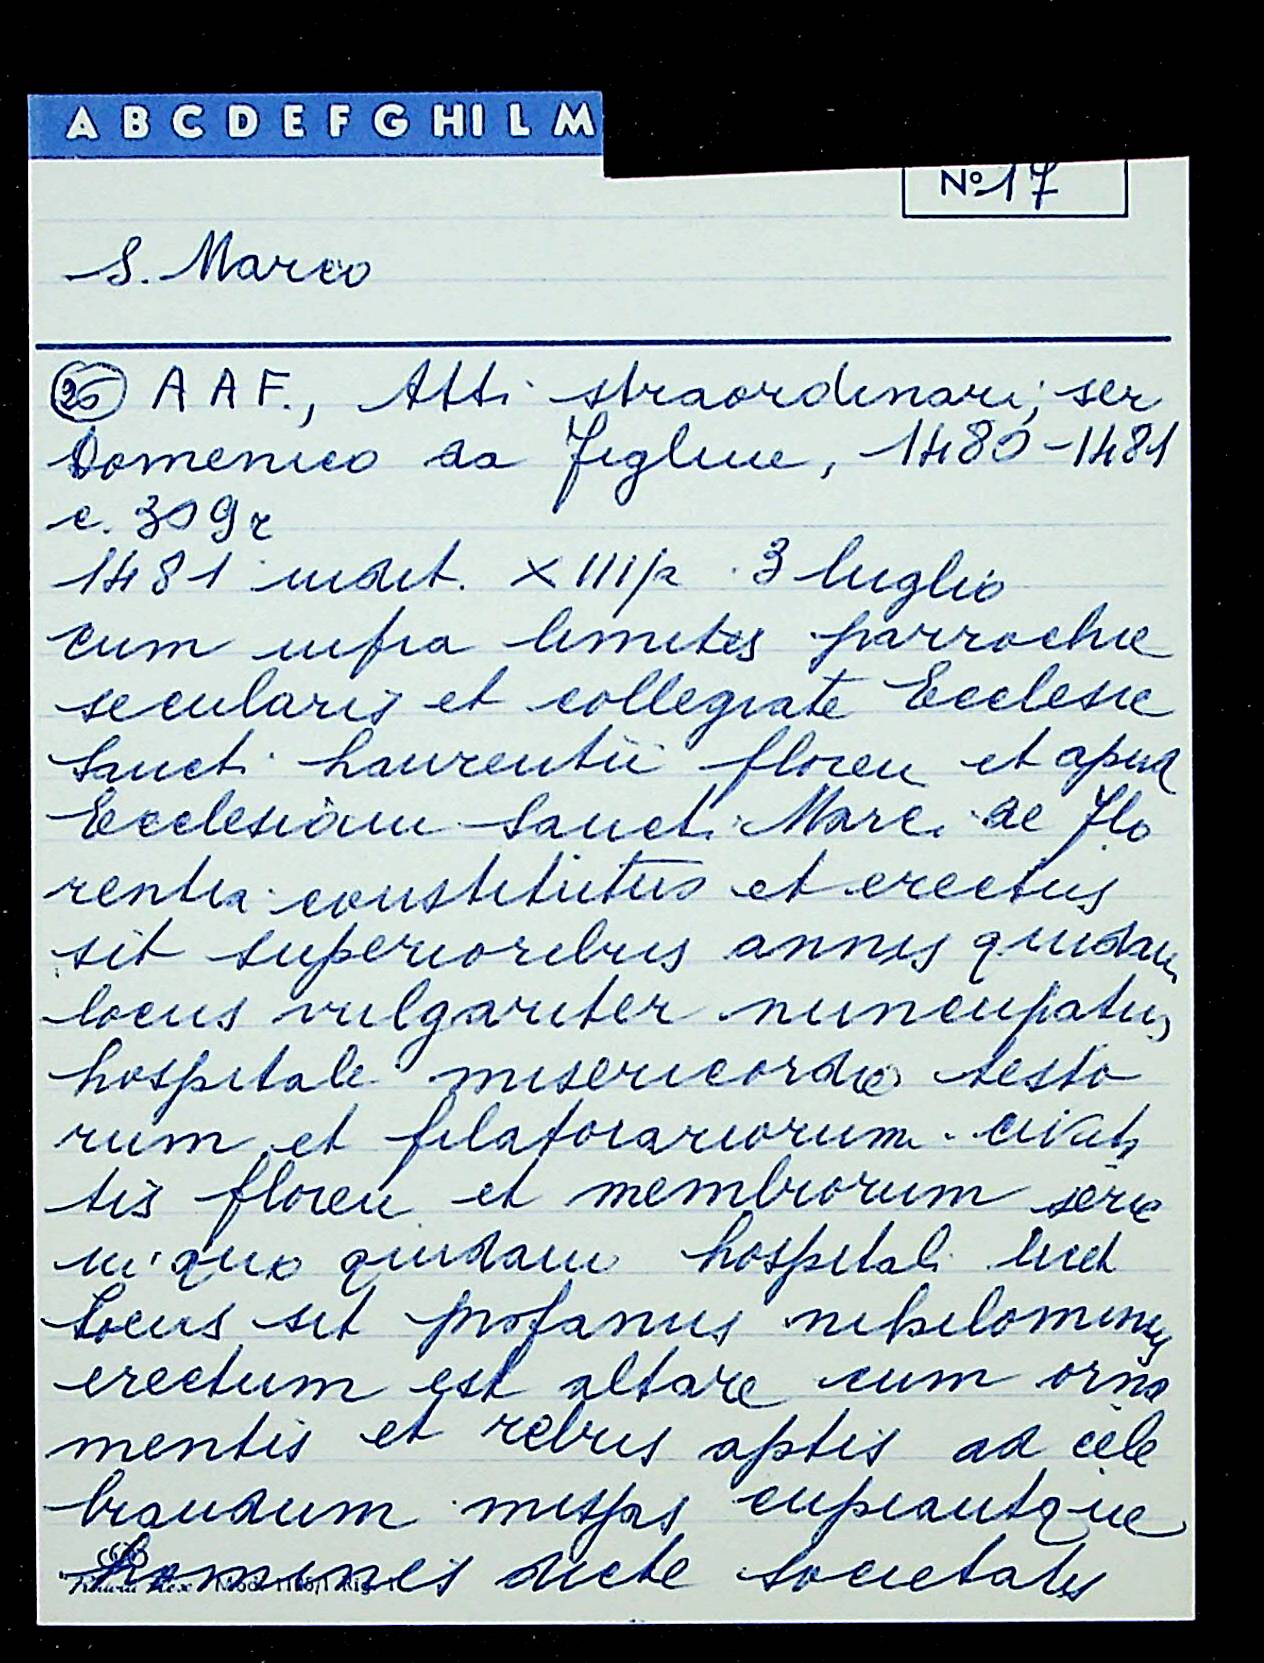 A B C D E F G HI L M
N° 17
S. Marco
26 A A F., Atti straordinari, ser
Domenico da Figline, 1480-1481
c. 309r
1481 indit. XIIIIa 3 luglio
cum infra limites parrochie
secularis et collegiate Ecclesie
Sancti Laurentii floren et apud
Ecclesiam Sancti Marci de Flo
rentia constitutus et erectus
sit superioribus annis quidam
locus vulgariter nuncupatus
hospitale misericordie testo
rum et filatoiariorum civita
tis floren et membrorum
in quo quidam hospitali licet
locus sit profanus nihilominus
erectum est altare cum orna
mentis et rebus aptis ad cele
brandum missas cupiantque
homines dicte societatis